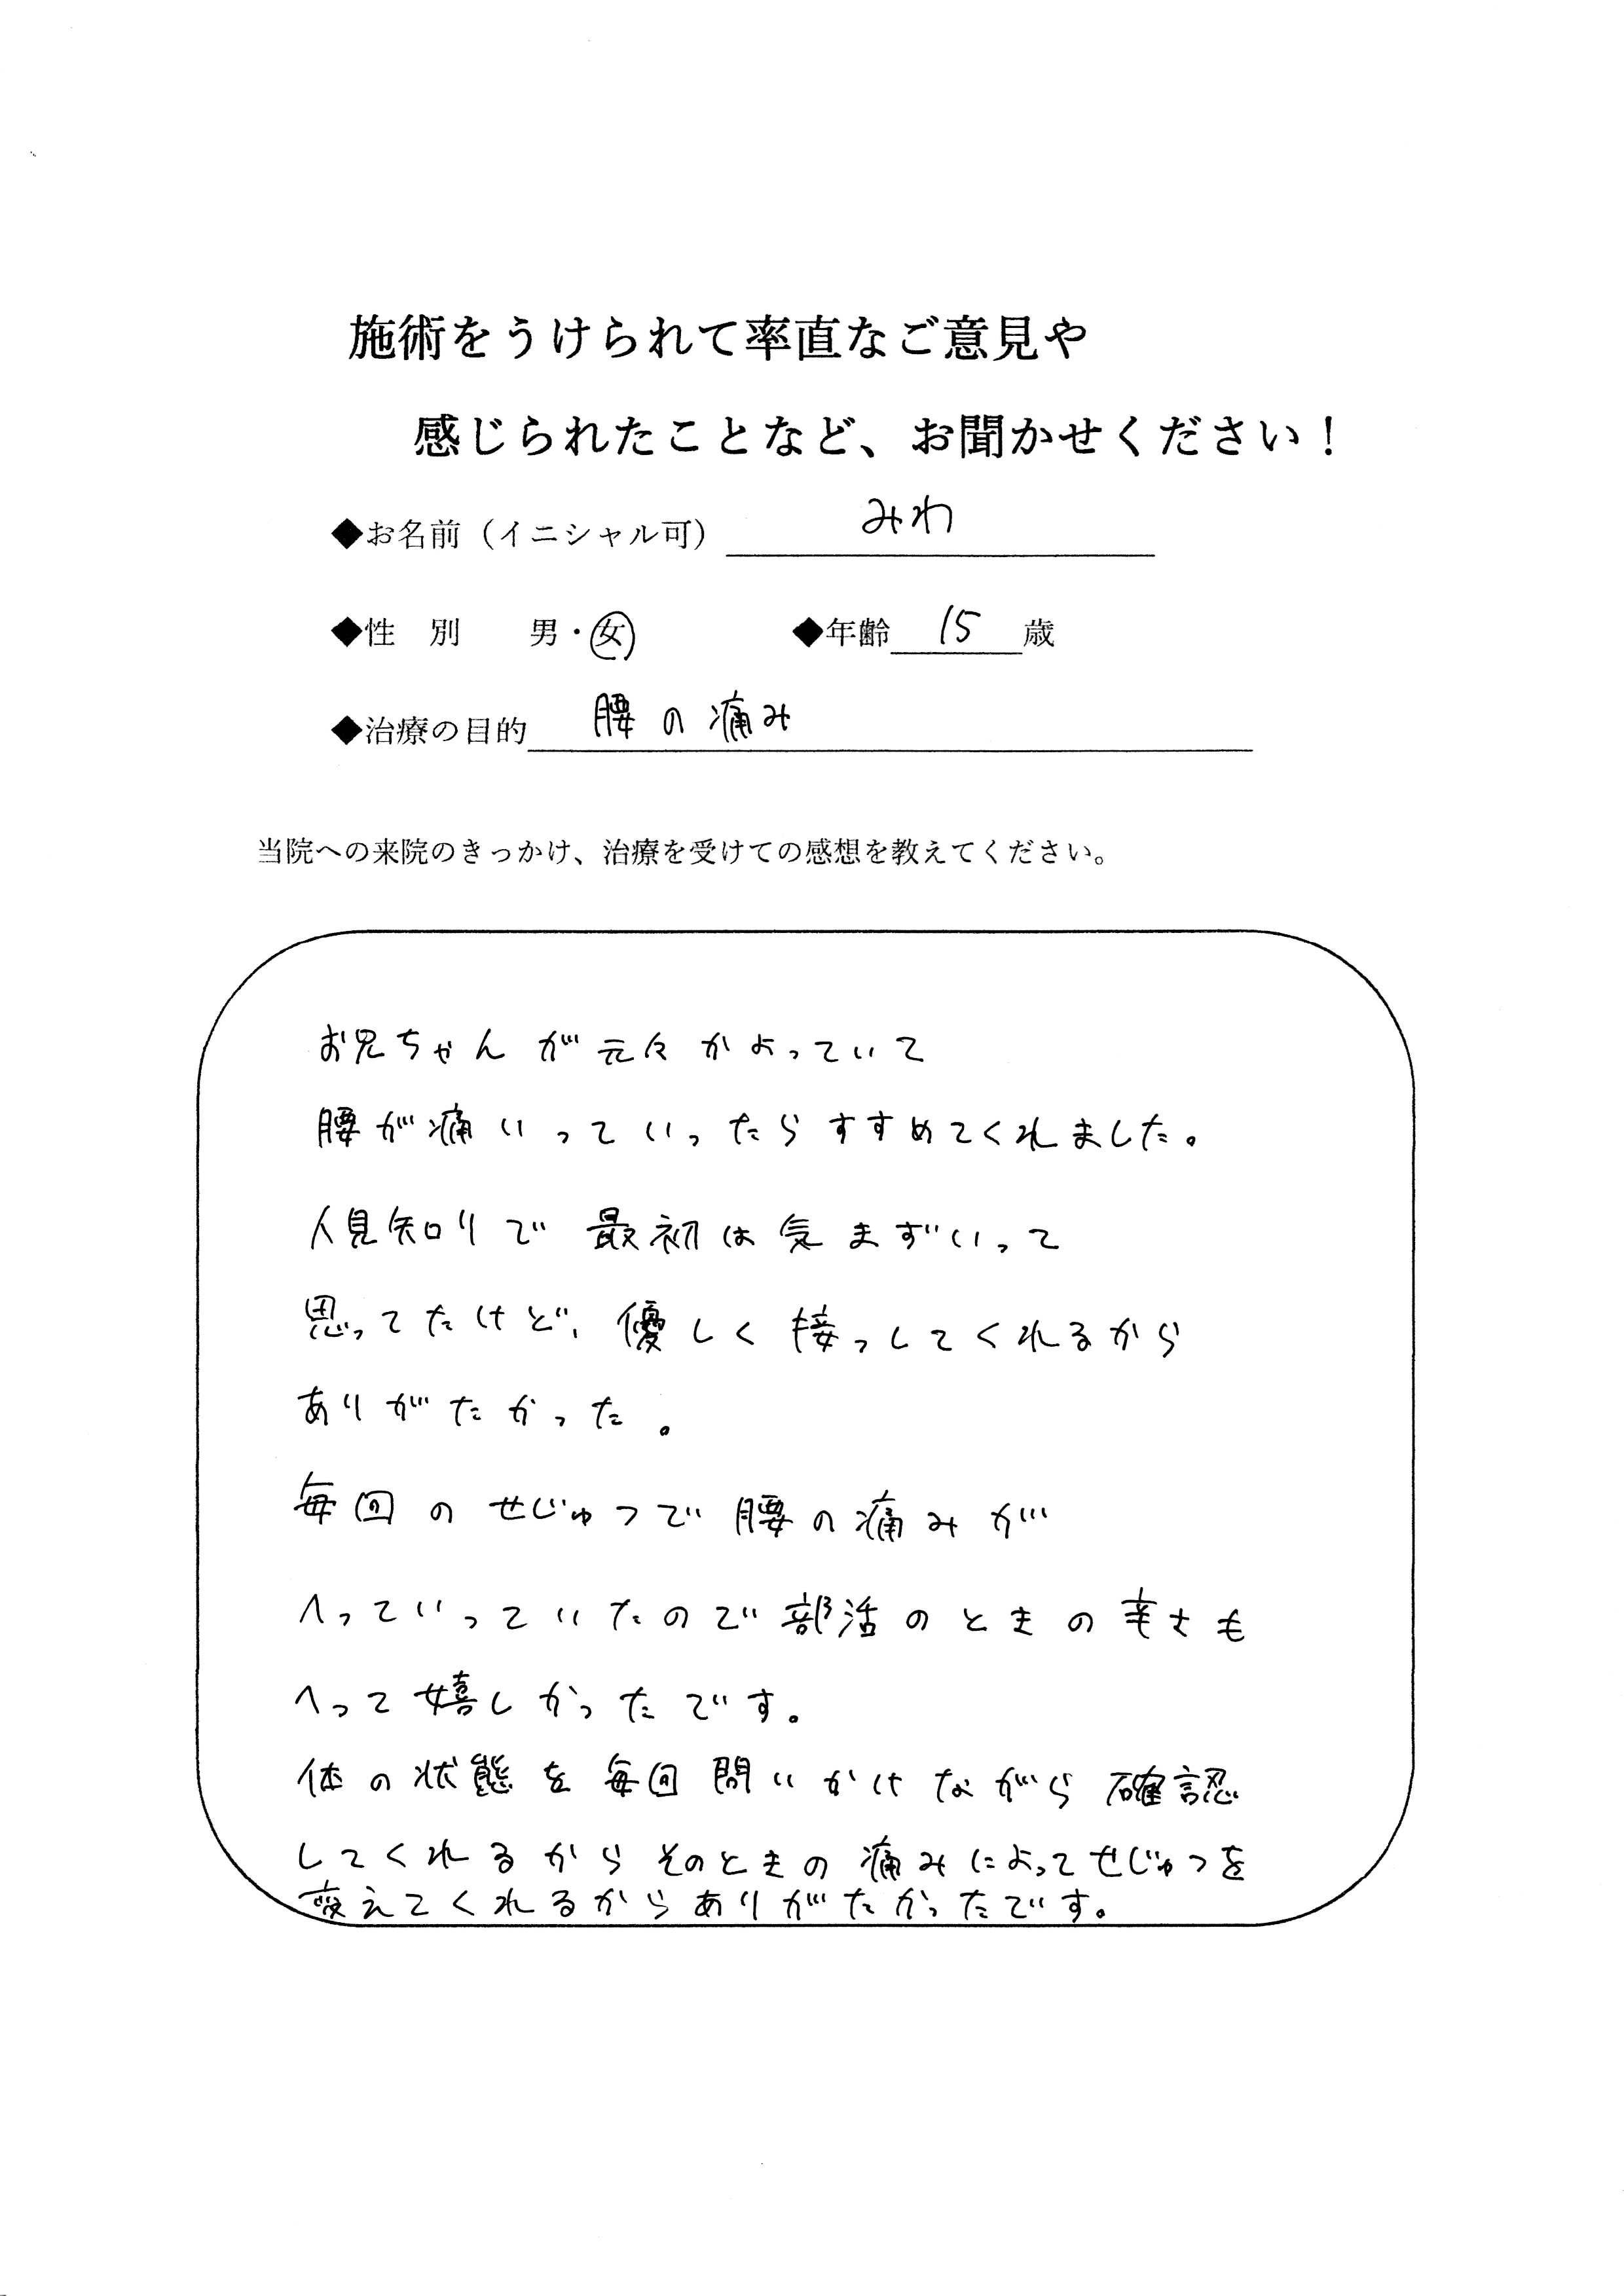 施術をうけられて率直なご意見や
感じられたことなど、お聞かせください！
◆お名前（イニシャル可） みわ
◆性　別　　男・女　　◆年齢 15 歳
◆治療の目的 腰の痛み
当院への来院のきっかけ、治療を受けての感想を教えてください。
お兄ちゃんが元々かよっていて
腰が痛いっていったらすすめてくれました。
人見知りで最初は気まずいって
思ってたけど、優しく接っしてくれるから
ありがたかった。
毎回のせじゅつで腰の痛みが
へっていっていたので部活のときの辛さも
へって嬉しかったです。
体の状態を毎回問いかけながら確認
してくれるからそのときの痛みによってせじゅつを
変えてくれるからありがたかったです。